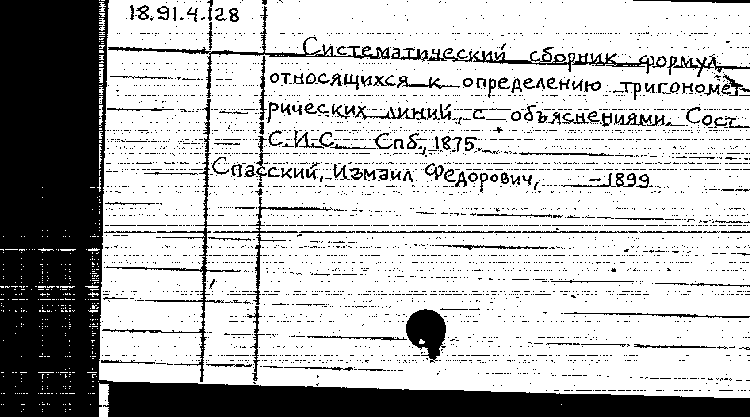 18.91.4.128
Систематический сборник формул,
относящихся к определению тригономет-
рических линий, с объяснениями. Сост.
С.И.С. Спб., 1875.
Спасский, Измаил Федорович, -1899